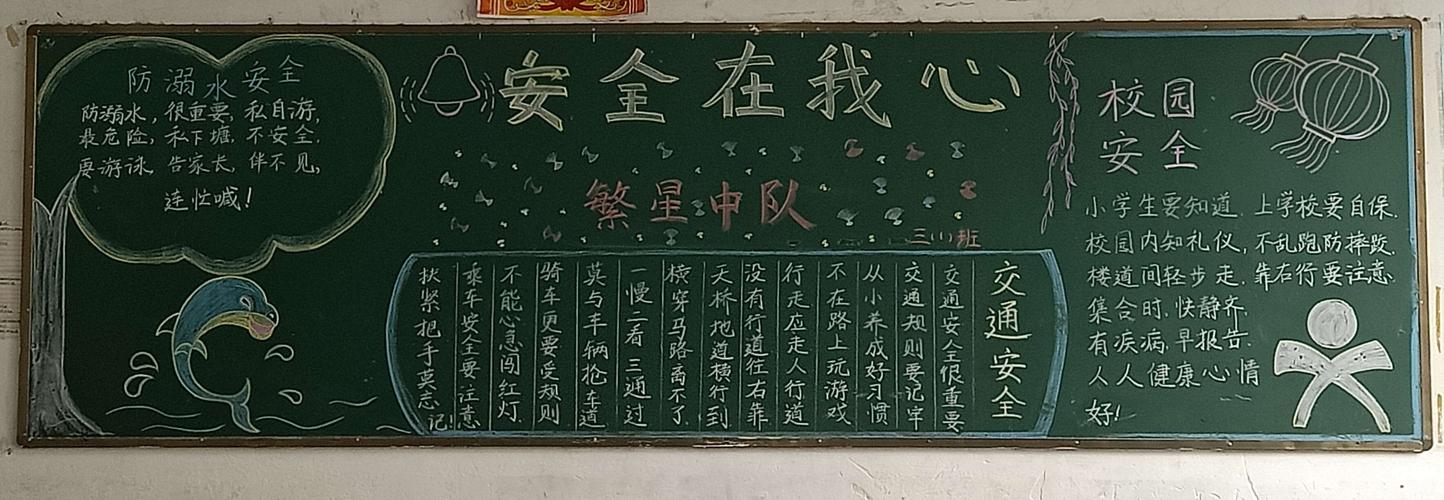 安全在我心
繁星中队
三(1)班
防溺水安全
防溺水，很重要，私自游，
最危险，私下塘，不安全，
要游泳，告家长，伴不见，
连忙喊！
交通安全
交通安全很重要
交通规则要记牢
从小养成好习惯
不在路上玩游戏
行走应走人行道
没有行道往右靠
天桥地道横行到
横穿马路离不了
一慢二看三通过
莫与车辆抢车道
骑车更要受规则
不能心急闯红灯
乘车安全要注意
扶紧把手莫忘记！
校园
安全
小学生要知道，上学校要自保，
校园内知礼仪，不乱跑防摔跤，
楼道间轻步走，靠右行要注意，
集合时，快静齐，
有疾病，早报告，
人人健康心情
好！